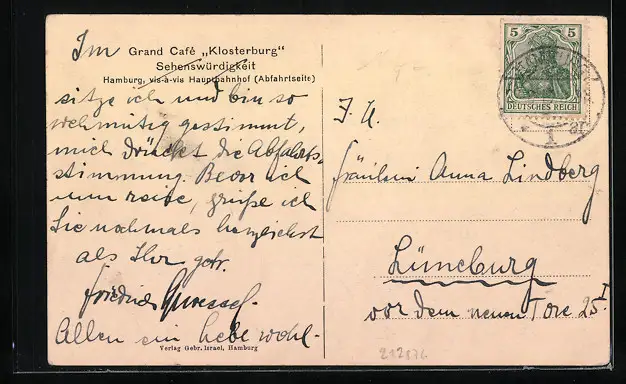 Im Grand Café „Klosterburg"
Sehenswürdigkeit
Hamburg, vis-à-vis Hauptbahnhof (Abfahrtseite)
sitze ich und bin so
wehmütig gestimmt,
mich drückt die Abfahrts-
stimmung. Bevor ich
nun reise, grüße ich
Sie nochmals herzlichst
als Ihr getr.
Friedrich
Allen ein lebe wohl.
Verlag Gebr. Israel, Hamburg
5 5
DEUTSCHES REICH
1
Fräulein Anna Lindberg
Lüneburg
vor dem neuen Tore 25 I
212876